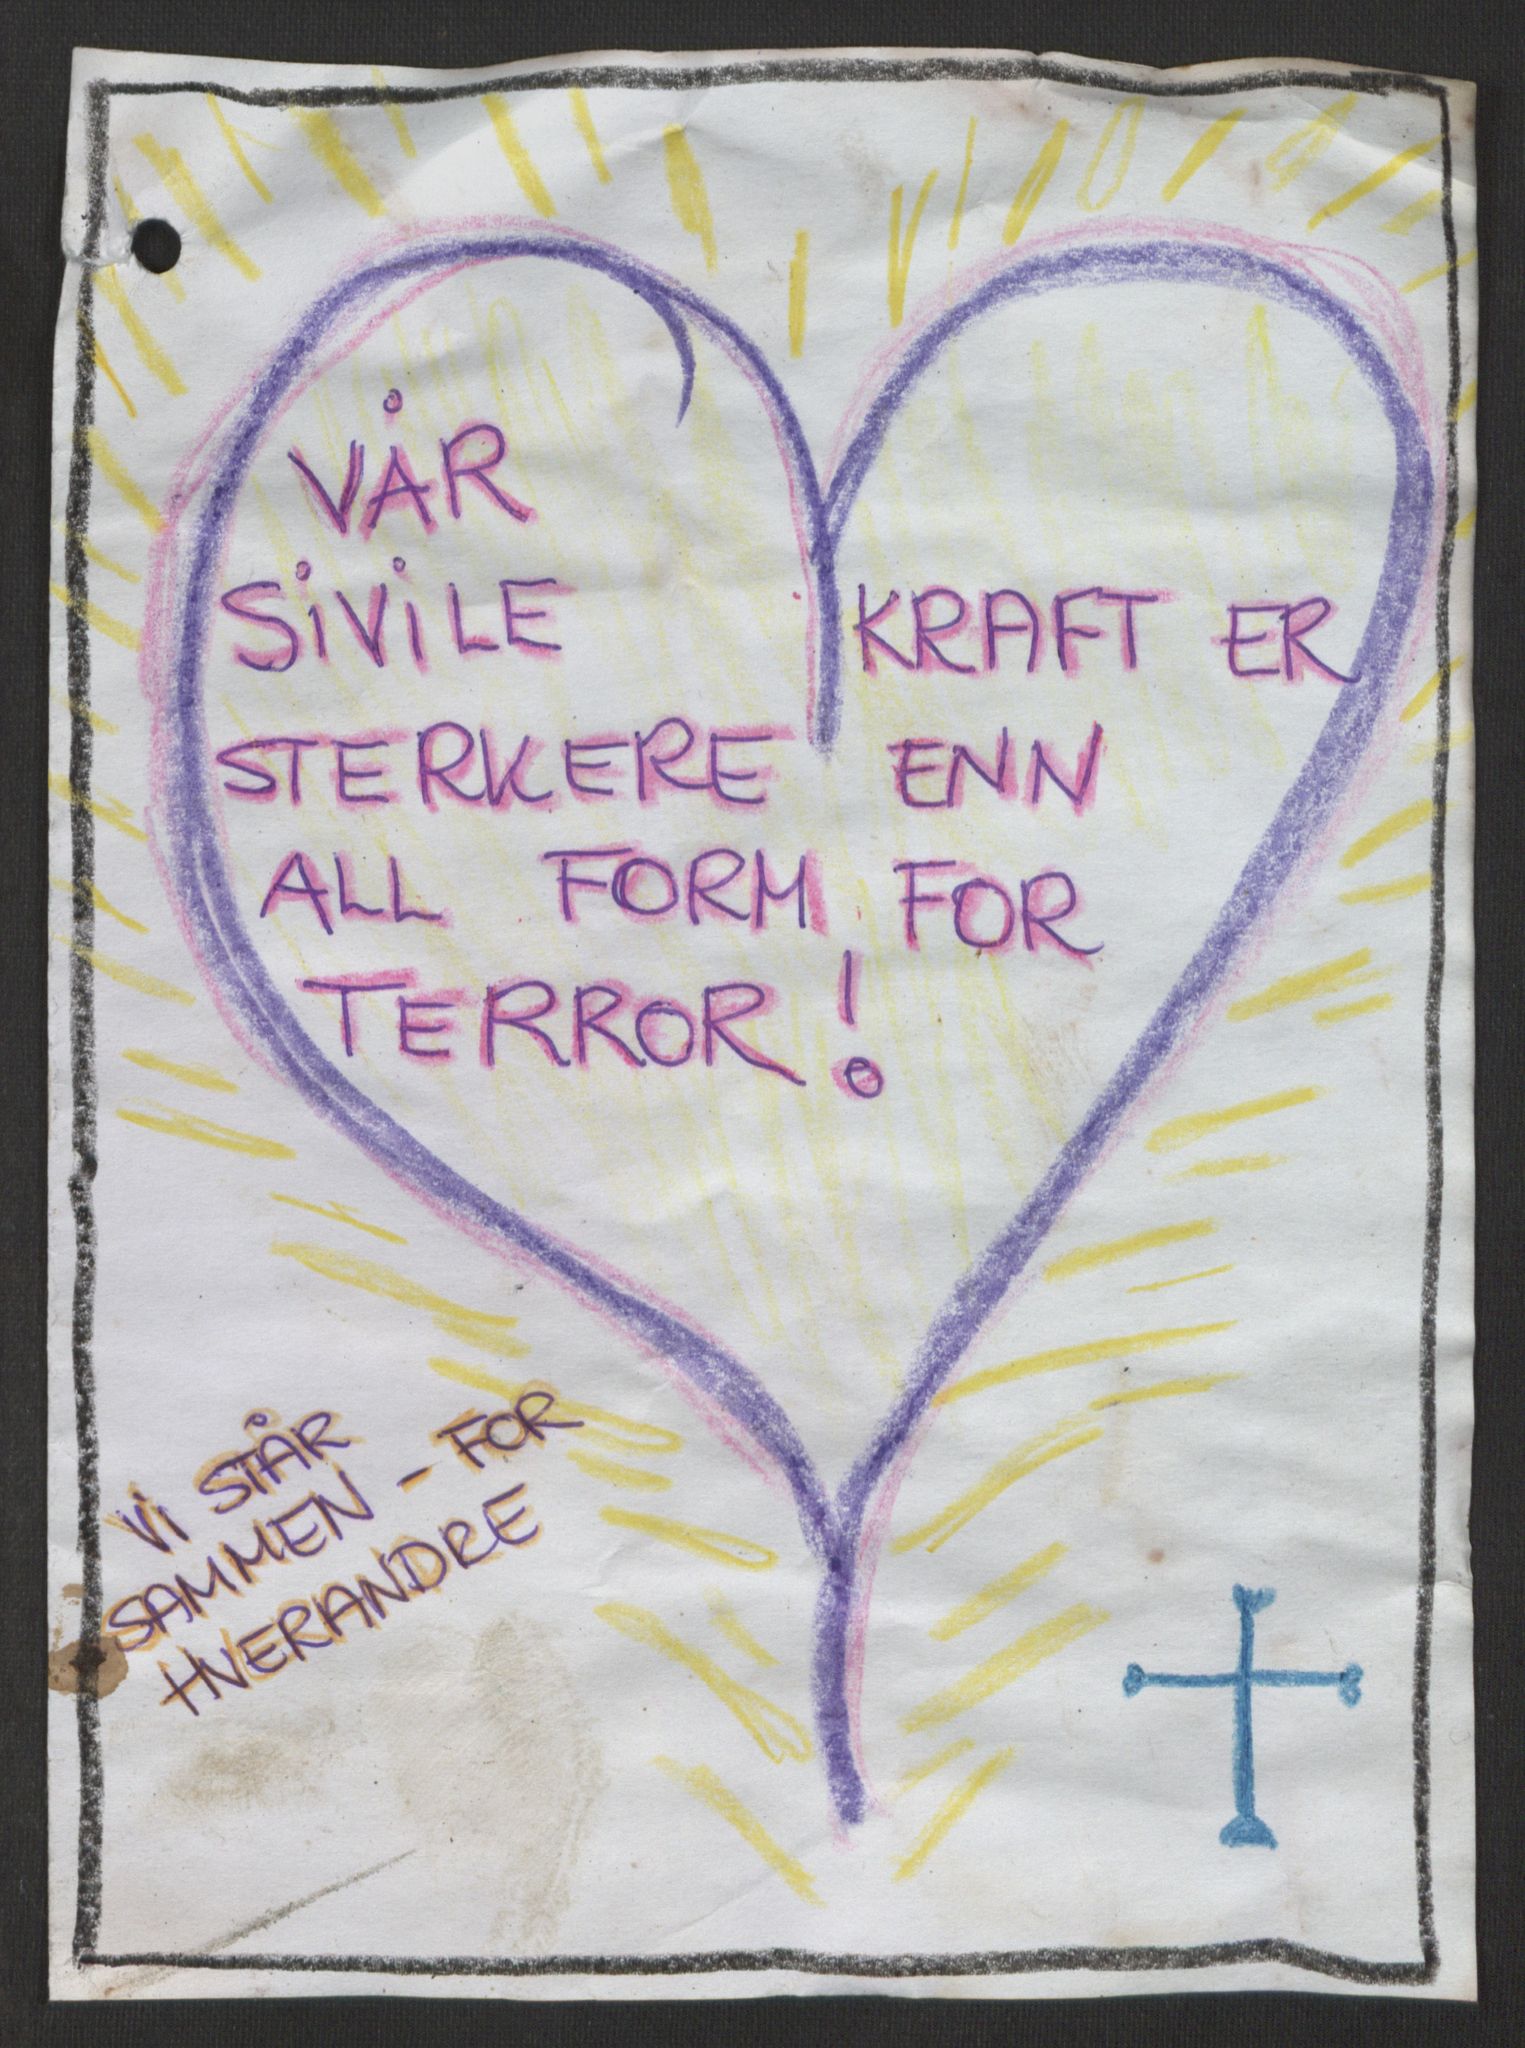 VÅR
SiViLE KRAFT ER
STERKERE ENN
ALL FORM FOR
TERROR!
Vi STÅR
SAMMEN - FOR
HVERANDRE